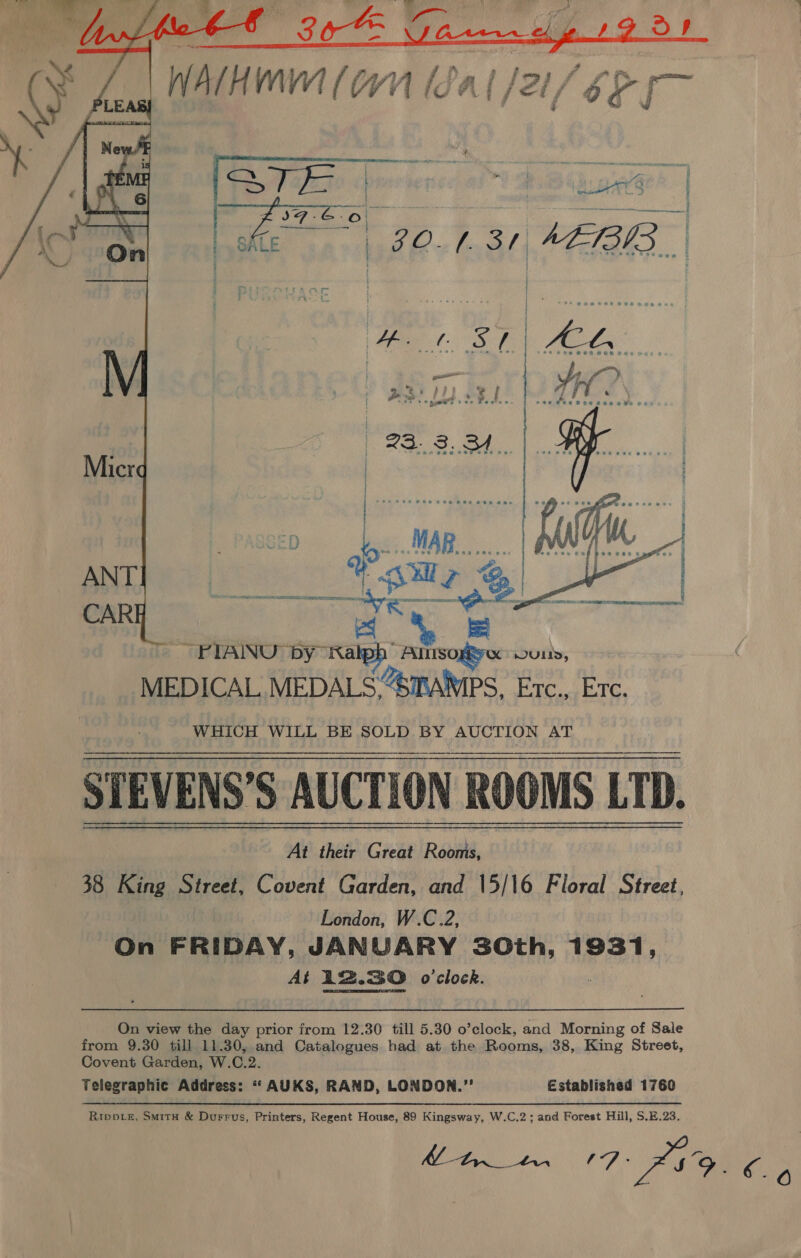 30th January 1931
WA/HMM/Com/Wal/21/685
PLEASE
New
is
6
On
STE
£59.6.0
SALE
30.1.31
PURCHASE
M
23. 3. 31
Micro
PASSED
MAR
ANTI
CAR
PIANO by Ralph Allison & Sons,
MEDICAL MEDALS, STAMPS, Etc., Etc.
WHICH WILL BE SOLD BY AUCTION AT
STEVENS'S AUCTION ROOMS LTD.
At their Great Rooms,
38 King Street, Covent Garden, and 15/16 Floral Street,
London, W.C.2,
On FRIDAY, JANUARY 30th, 1931,
At 12.30 o'clock.
On view the day prior from 12.30 till 5.30 o'clock, and Morning of Sale
from 9.30 till 11.30, and Catalogues had at the Rooms, 38, King Street,
Covent Garden, W.C.2.
Telegraphic Address: "AUKS, RAND, LONDON." Established 1760
Riddle, Smith & Duffus, Printers, Regent House, 89 Kingsway, W.C.2; and Forest Hill, S.E.23.
17. £59.6.0